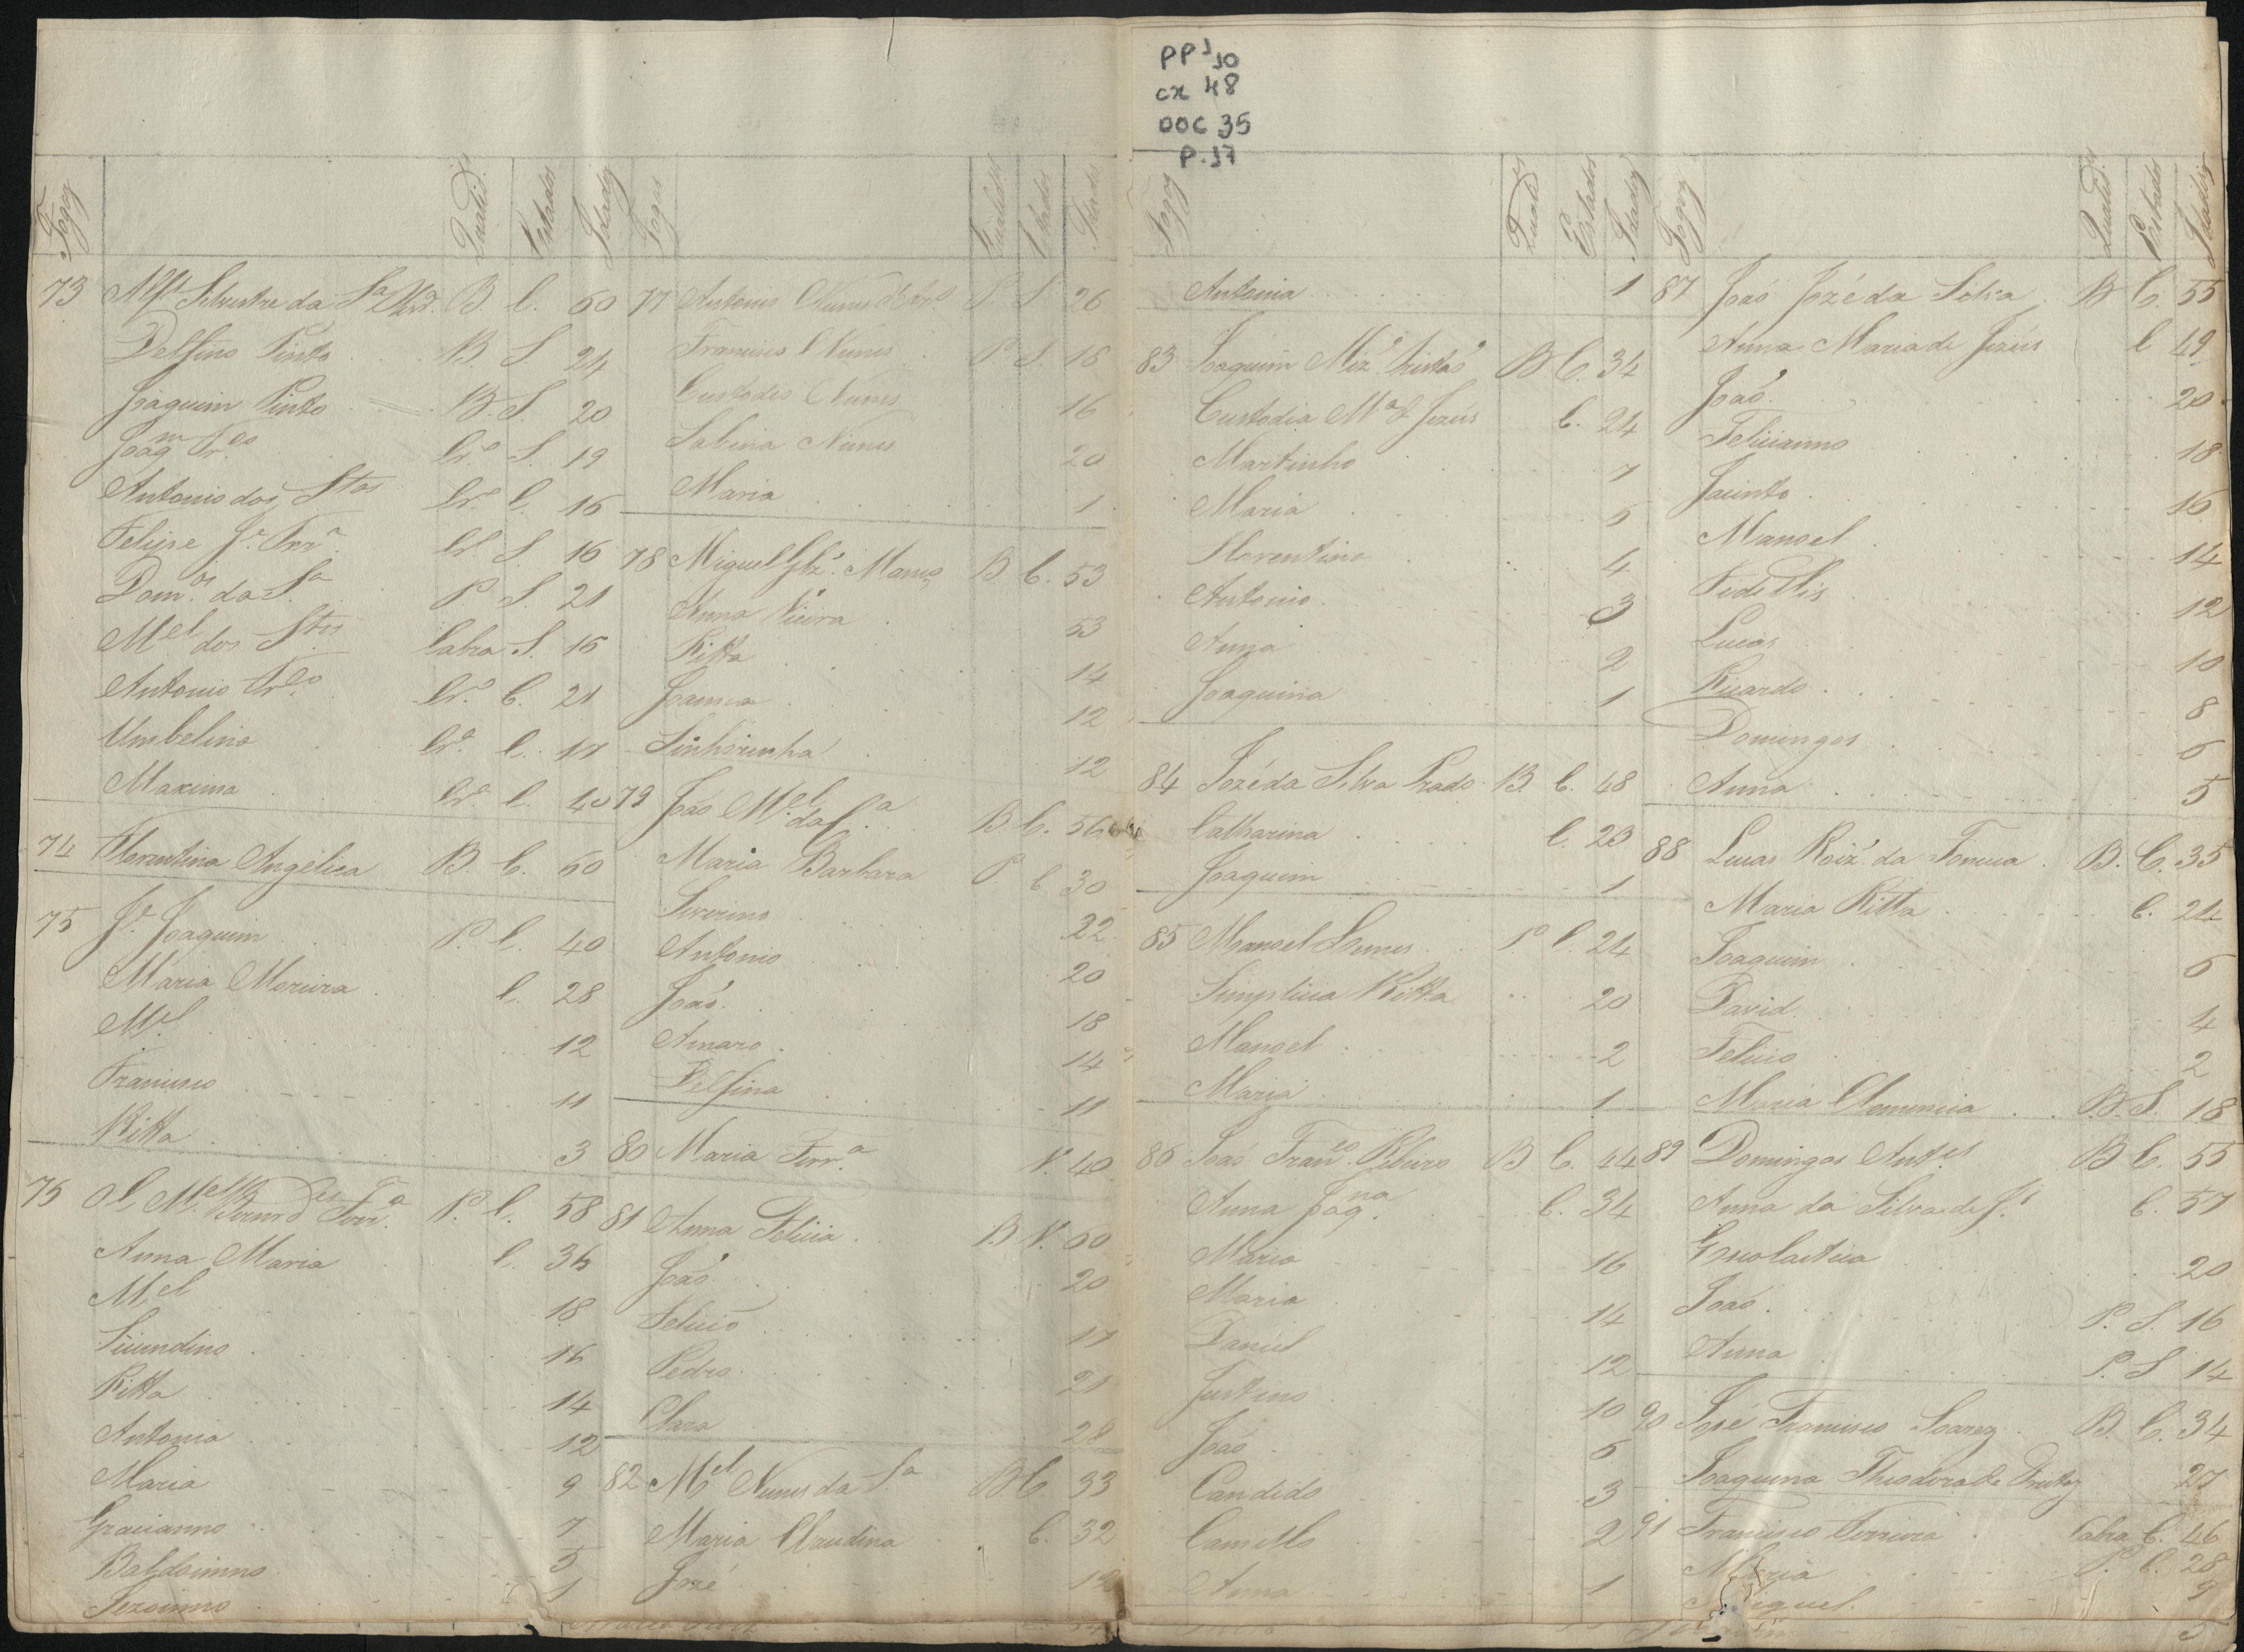 PPJ 10
cx 48
DOC 35
P. 17
Fogos Qualid.es Estados Idades
73 Alf.s Silvestre da S.a B. C. 60
Delfino Pinto B. S. 24
Joaquim Pinto B. S. 20
Joaq.m Cr.o S. 19
Antonio dos S.tos Cr.o C. 16
Felippe J.e Ferr.a Cr.o S. 16
Dom.os da S.a P. S. 21
M.el dos S.tos Cabra S. 16
Antonio Cr.o C. 21
Umbelina Cr.a C. 17
Maxima Cr.a C. 40
74 Florentina Angelica B. C. 60
75 J.e Joaquim P. C. 40
Maria Moreira C. 28
M.el 12
Francisco 11
Ritta 3
76 O C. M.el Bernd.es Ferr.a P. C. 58
Anna Maria C. 36
M.el 18
Secundino 16
Ritta 14
Antonia 12
Maria 9
Gracianno 7
Baldoinno 5
Jezoinno 1
Fogos Qualid.es Estados Idades
77 Antonio Nunes S. 26
Francisco Nunes P. S. 18
Custodio Nunes 16
Sabina Nunes 20
Maria 1
78 Miguel Glz' B. C. 53
Anna Vieira 53
Ritta 14
Joanna 12
Sinhorinha 12
79 João M.el da C.a B. C. 56
Maria Barbara P. C. 30
Severino 22
Antonio 20
João 18
Amaro 14
Delfina 11
80 Maria Ferr.a V. 40
81 Anna Felicia B. V. 60
João 20
Felicio 17
Pedro 21
Clara 28
82 M.el Nunes da S.a B. C. 33
Maria Claudina C. 32
José 12
Fogos Qualid.es Estados Idades
Antonia 1
83 Joaquim Miz' B. C. 34
Custodia M.a de Jezús C. 24
Martinho 7
Maria 5
Florentino 4
Antonio 3
Anna 2
Joaquina 1
84 Jozé da Silva Prado B. C. 48
Catharina C. 23
Joaquim 1
85 Manoel Nunes P. C. 24
Simplicia Ritta 20
Manoel 2
Maria 1
86 João Fran.co Ribeiro B. C. 44
Anna Joaq.na C. 34
Maria 16
Maria 14
Daniel 12
Justino 10
João 6
Candido 3
Camillo 2
Anna 1
Fogos Qualid.es Estados Idades
87 João Jozé da Silva B. C. 55
Anna Maria de Jezús C. 49
João 20
Felicianno 18
Jacinto 16
Manoel 14
Fidellis 12
Lucas 10
Ricardo 8
Domingos 6
Anna 5
88 Lucas Roiz' da Fonceca B. C. 35
Maria Ritta C. 24
Joaquim 6
David 4
Felicio 2
Maria Clemencia B. S. 18
89 Domingos Ant.es B. C. 55
Anna da Silva de J.s C. 57
Escolastica 20
João P. S. 16
Anna P. S. 14
90 José Francisco Soarez B. C. 34
Joaquina Theodora de 27
91 Francisco Ferreira Cabra C. 46
Maria P. C. 28
Miguel 9
5